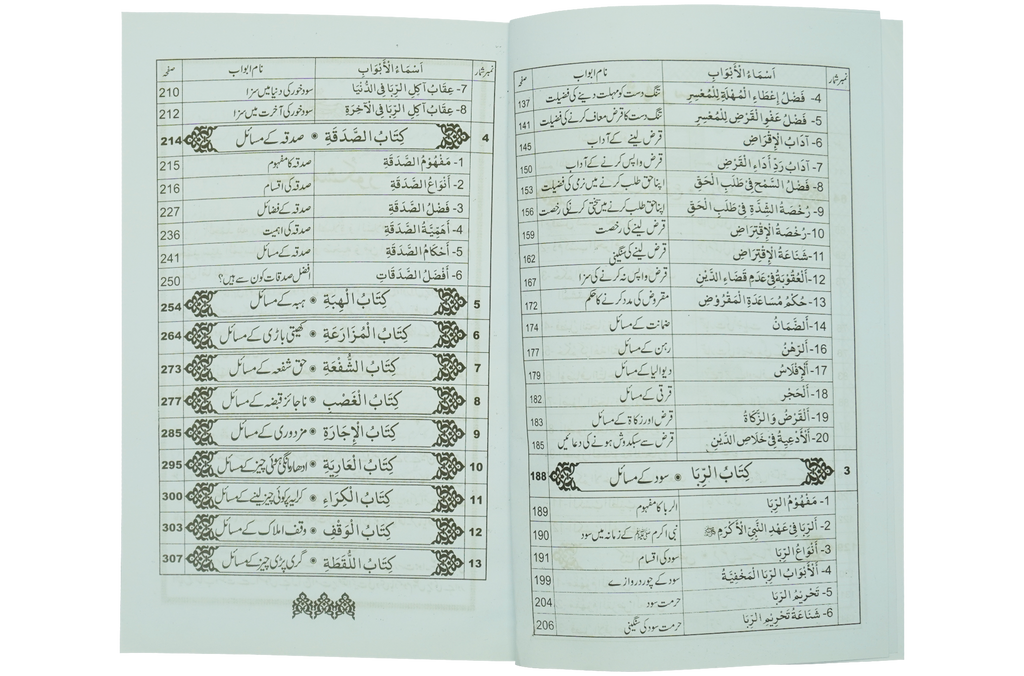 نمبر شمار اَسْمَاءُ الْأَبْوَابِ نام ابواب صفحہ
4- فَضْلُ إِعْطَاءِ الْمُهْلَةِ لِلْمُعْسِرِ تنگ دست کو مہلت دینے کی فضیلت 137
5- فَضْلُ عَفْوِ الْقَرْضِ لِلْمُعْسِرِ تنگ دست کا قرض معاف کرنے کی فضیلت 141
6- آدَابُ الْإِقْرَاضِ قرض لینے کے آداب 145
7- آدَابُ رَدِّ أَدَاءِ الْقَرْضِ قرض واپس کرنے کے آداب 150
8- فَضْلُ السَّمْحِ فِيْ طَلَبِ الْحَقِّ اپنا حق طلب کرنے میں نرمی کی فضیلت 153
9- رُخْصَةُ الشِّدَّةِ فِيْ طَلَبِ الْحَقِّ اپنا حق طلب کرنے میں سختی کرنے کی رخصت 156
10- رُخْصَةُ الْإِقْتِرَاضِ قرض لینے کی رخصت 159
11- شَنَاعَةُ الْإِقْتِرَاضِ قرض لینے کی سنگینی 162
12- اَلْعُقُوْبَةُ فِيْ عَدَمِ قَضَاءِ الدَّيْنِ قرض واپس نہ کرنے کی سزا 167
13- حُكْمُ مُسَاعَدَةِ الْمَقْرُوْضِ مقروض کی مدد کرنے کا حکم 172
14- اَلضَّمَانُ ضمانت کے مسائل 174
16- اَلرَّهْنُ رہن کے مسائل 177
17- اَلْإِفْلَاسُ دیوالیا کے مسائل 179
18- اَلْحَجْرُ قرقی کے مسائل 182
19- اَلْقَرْضُ وَالزَّكَاةُ قرض اور زکاۃ کے مسائل 183
20- اَلْأَدْعِيَةُ فِيْ خَلَاصِ الدَّيْنِ قرض سے سبکدوش ہونے کی دعائیں 185
3 كِتَابُ الرِّبَا • سود کے مسائل 188
1- مَفْهُوْمُ الرِّبَا الربا کا مفہوم 189
2- اَلرِّبَا فِيْ عَهْدِ النَّبِيِّ الْأَكْرَمِ ﷺ نبی اکرم ﷺ کے زمانہ میں سود 190
3- أَنْوَاعُ الرِّبَا سود کی اقسام 191
4- اَلْأَبْوَابُ الرِّبَا الْمَخْفِيَّةُ سود کے چور دروازے 199
5- تَحْرِيْمُ الرِّبَا حرمت سود 204
6- شَنَاعَةُ تَحْرِيْمِ الرِّبَا حرمت سود کی سنگینی 206
نمبر شمار اَسْمَاءُ الْأَبْوَابِ نام ابواب صفحہ
7- عِقَابُ آكِلِ الرِّبَا فِي الدُّنْيَا سود خور کی دنیا میں سزا 210
8- عِقَابُ آكِلِ الرِّبَا فِي الْآخِرَةِ سود خور کی آخرت میں سزا 212
4 كِتَابُ الصَّدَقَةِ • صدقہ کے مسائل 214
1- مَفْهُوْمُ الصَّدَقَةِ صدقہ کا مفہوم 215
2- أَنْوَاعُ الصَّدَقَةِ صدقہ کی اقسام 216
3- فَضْلُ الصَّدَقَةِ صدقہ کے فضائل 227
4- أَهَمِّيَّةُ الصَّدَقَةِ صدقہ کی اہمیت 236
5- أَحْكَامُ الصَّدَقَةِ صدقہ کے مسائل 241
6- أَفْضَلُ الصَّدَقَاتِ افضل صدقات کون سے ہیں؟ 250
5 كِتَابُ الْهِبَةِ • ہبہ کے مسائل 254
6 كِتَابُ الْمُزَارَعَةِ • کھیتی باڑی کے مسائل 264
7 كِتَابُ الشُّفْعَةِ • حق شفعہ کے مسائل 273
8 كِتَابُ الْغَصْبِ • ناجائز قبضہ کے مسائل 277
9 كِتَابُ الْإِجَارَةِ • مزدوری کے مسائل 285
10 كِتَابُ الْعَارِيَةِ • ادھار مانگی ہوئی چیز کے مسائل 295
11 كِتَابُ الْكِرَاءِ • کرایہ پر کوئی چیز لینے کے مسائل 300
12 كِتَابُ الْوَقْفِ • وقف املاک کے مسائل 303
13 كِتَابُ اللُّقَطَةِ • گری پڑی چیز کے مسائل 307